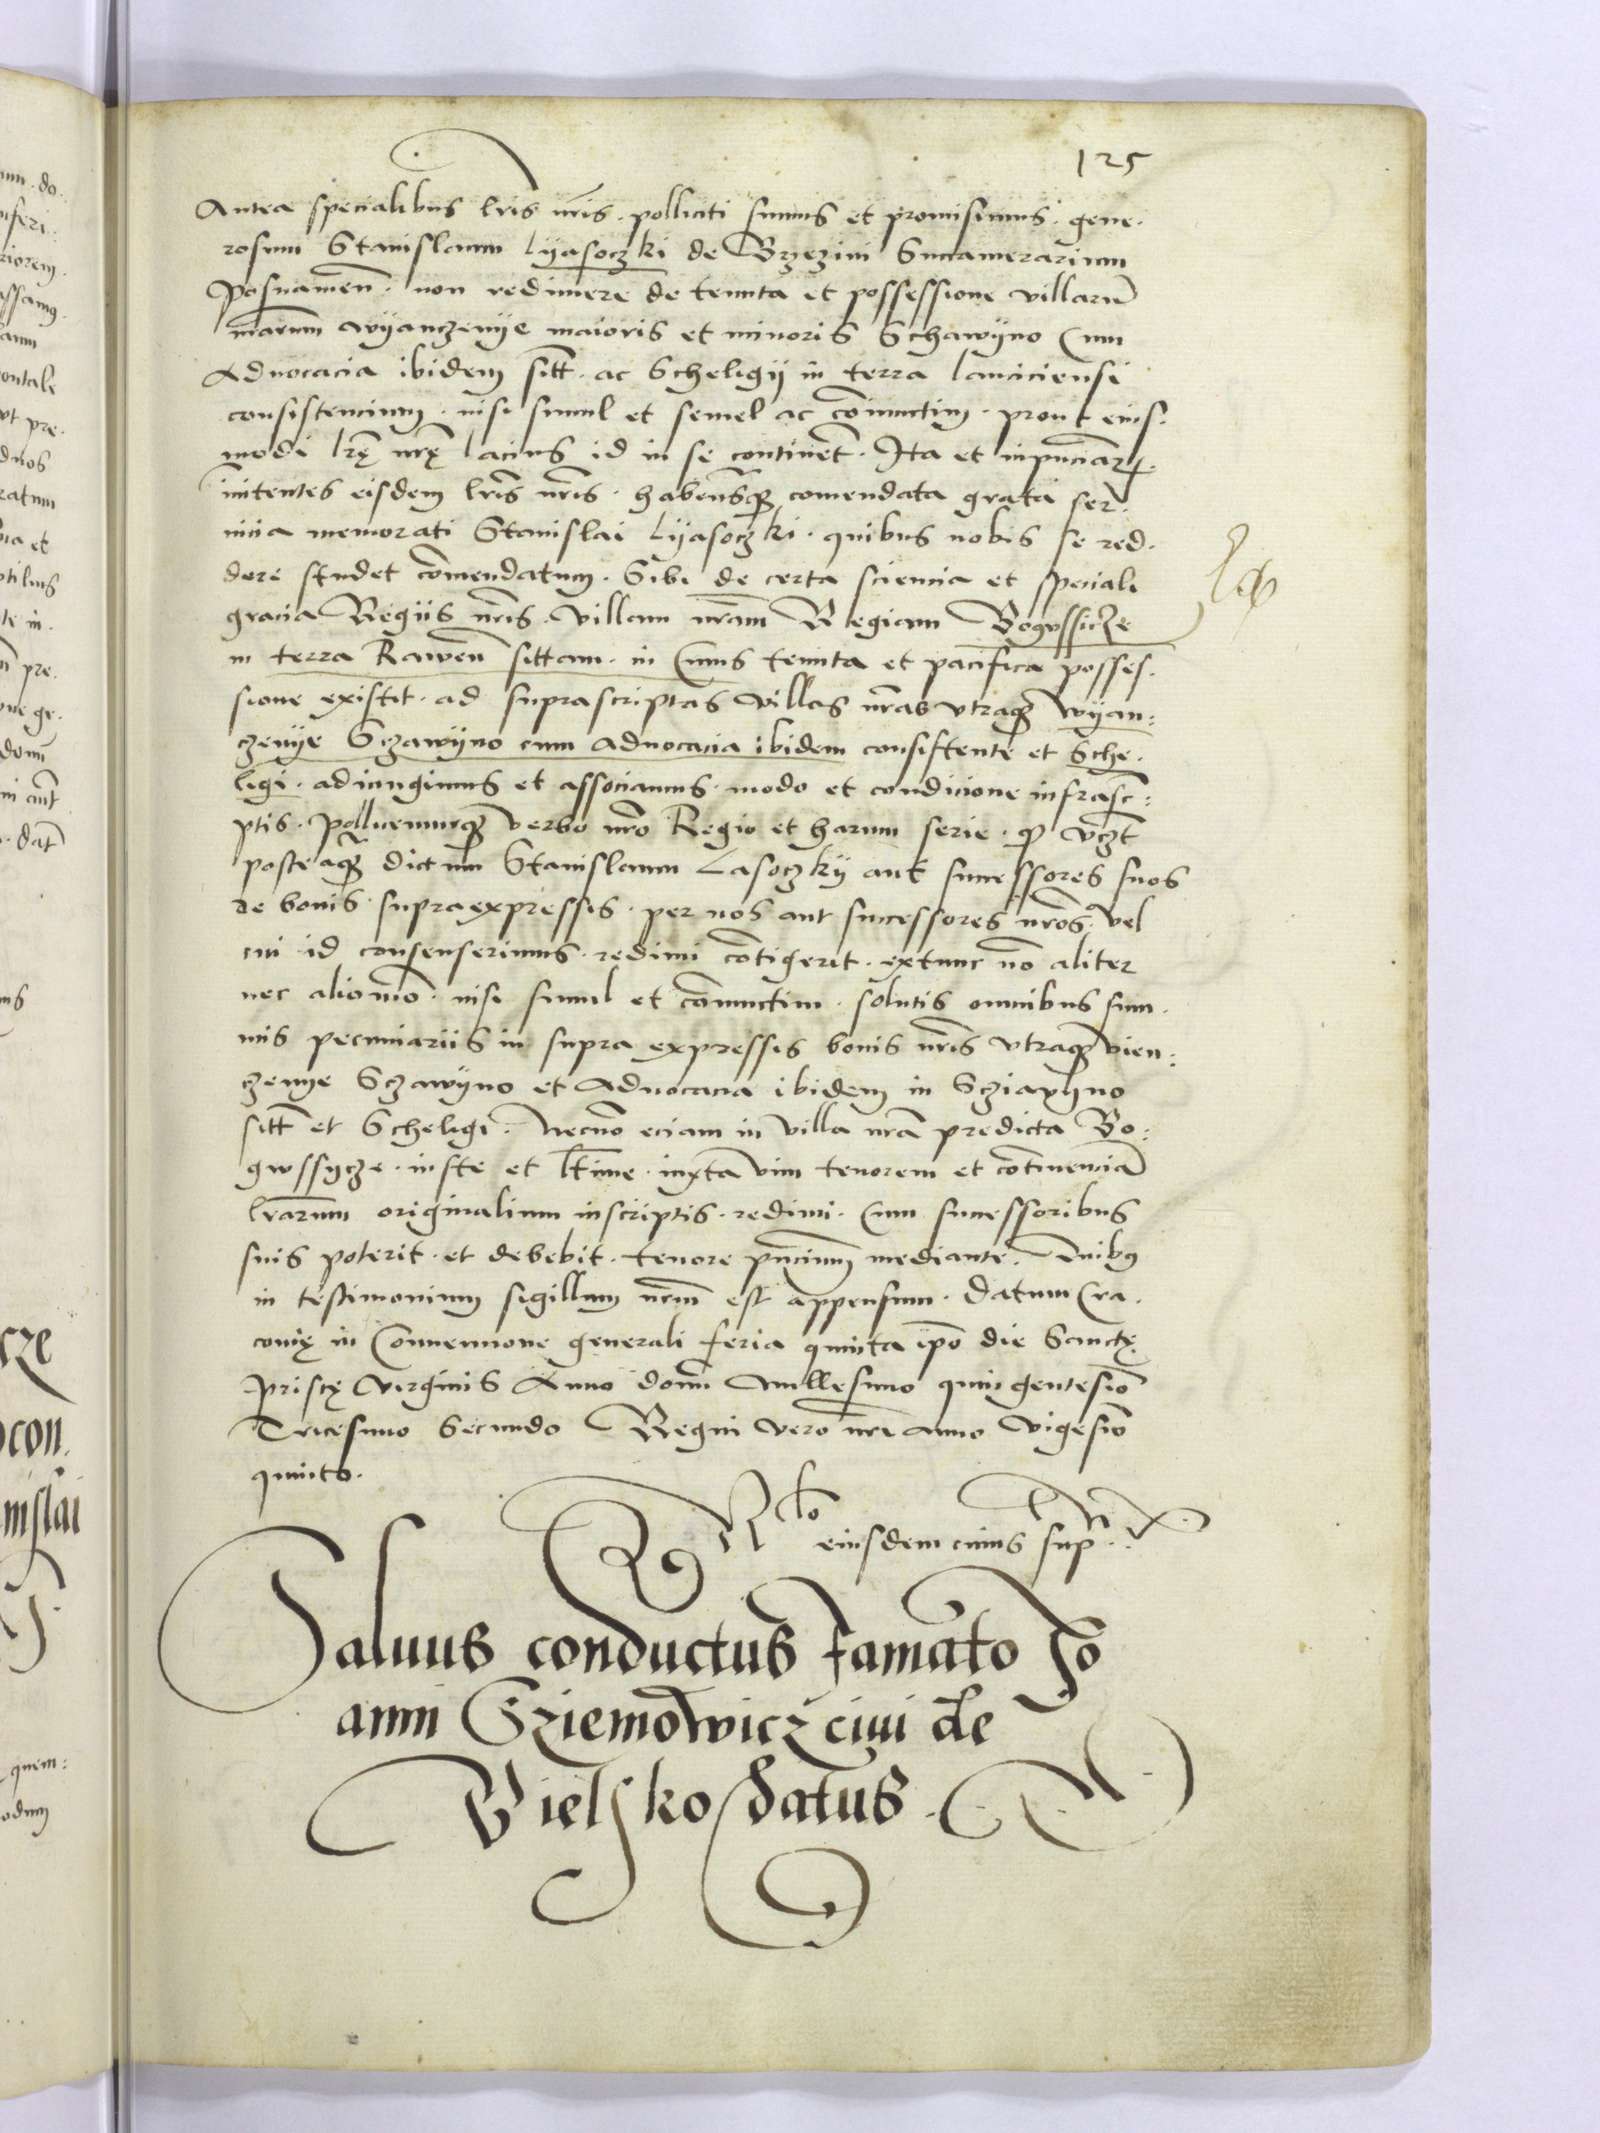 125
Antea specialibus lris nris . polliciti sumus et promisimus . gene.
rosum Stanislaum Lyasoczki de Brzezini Succamerarium
Posnanien . non redimere de tenuta et possessione villarum
nrarum wyanczenye maioris et minoris Schawyno Cum
Aduocacia ibidem sitt . ac Scheligy in terra lanciciensi
consistencium . nisi simul et semel ac coniunctim . prout eius.
modi lrę nrę lacius id in se continet . Ita et inpnciar
initentes eisdem lris nris . habentesq comendata grata ser.
uicia memorati Stanislai Lyasoczki . quibus nobis se red.
dere studet comendatum . Sibi de certa sciencia et speciali
gracia Regiis nris . villam nram Regiam Bogussicze
in terra Rawen sittam . in Cuius tenuta et pacifica posses.
sione existit . ad suprascriptas villas nras vtraq wyan:
czenye Sczawyno cum aduocacia ibidem consistente et Sche.
ligi . adiungimus et associamus . modo et condicione infrasc:
ptis . Pollicemurq verbo nro Regio et harum serie . q vbz
posteaq dictum Stanislaum Lasoczky aut successores suos
de bonis supraexpressis . per nos aut successores nros . vel
cui id consenserimus . redimi cotigerit . extunc no aliter
nec aliomo . nisi simul et coniunctim . solutis omnibus sum.
mis pecuniariis in supra expressis bonis nris vtraq vien:
czenye Sczawyno et Aduocacia ibidem in Scziavyno
sitt et Scheligi . Necno eciam in villa nra predicta Bo:
gwssycze . iuste et ltime . iuxta vim tenorem et continencia
lrarum originalium inscriptis . redimi . Cum successoribus
suis poterit . et debebit . tenore pncium mediante . Quibus
in testimonium sigillum nrm est appensum . Datum Cra.
couię in Conuencione generali feria quinta ipo die Sanctę
Priscę Virginis Anno domi Millesimo quingentesimo
Tricesimo Secundo Regni vero nri anno vigesimo
quinto.
Rlo eiusdem cuius sup
Saluus conductus famato Jo
anni Sziemowicz ciui de
Bielsko datus .